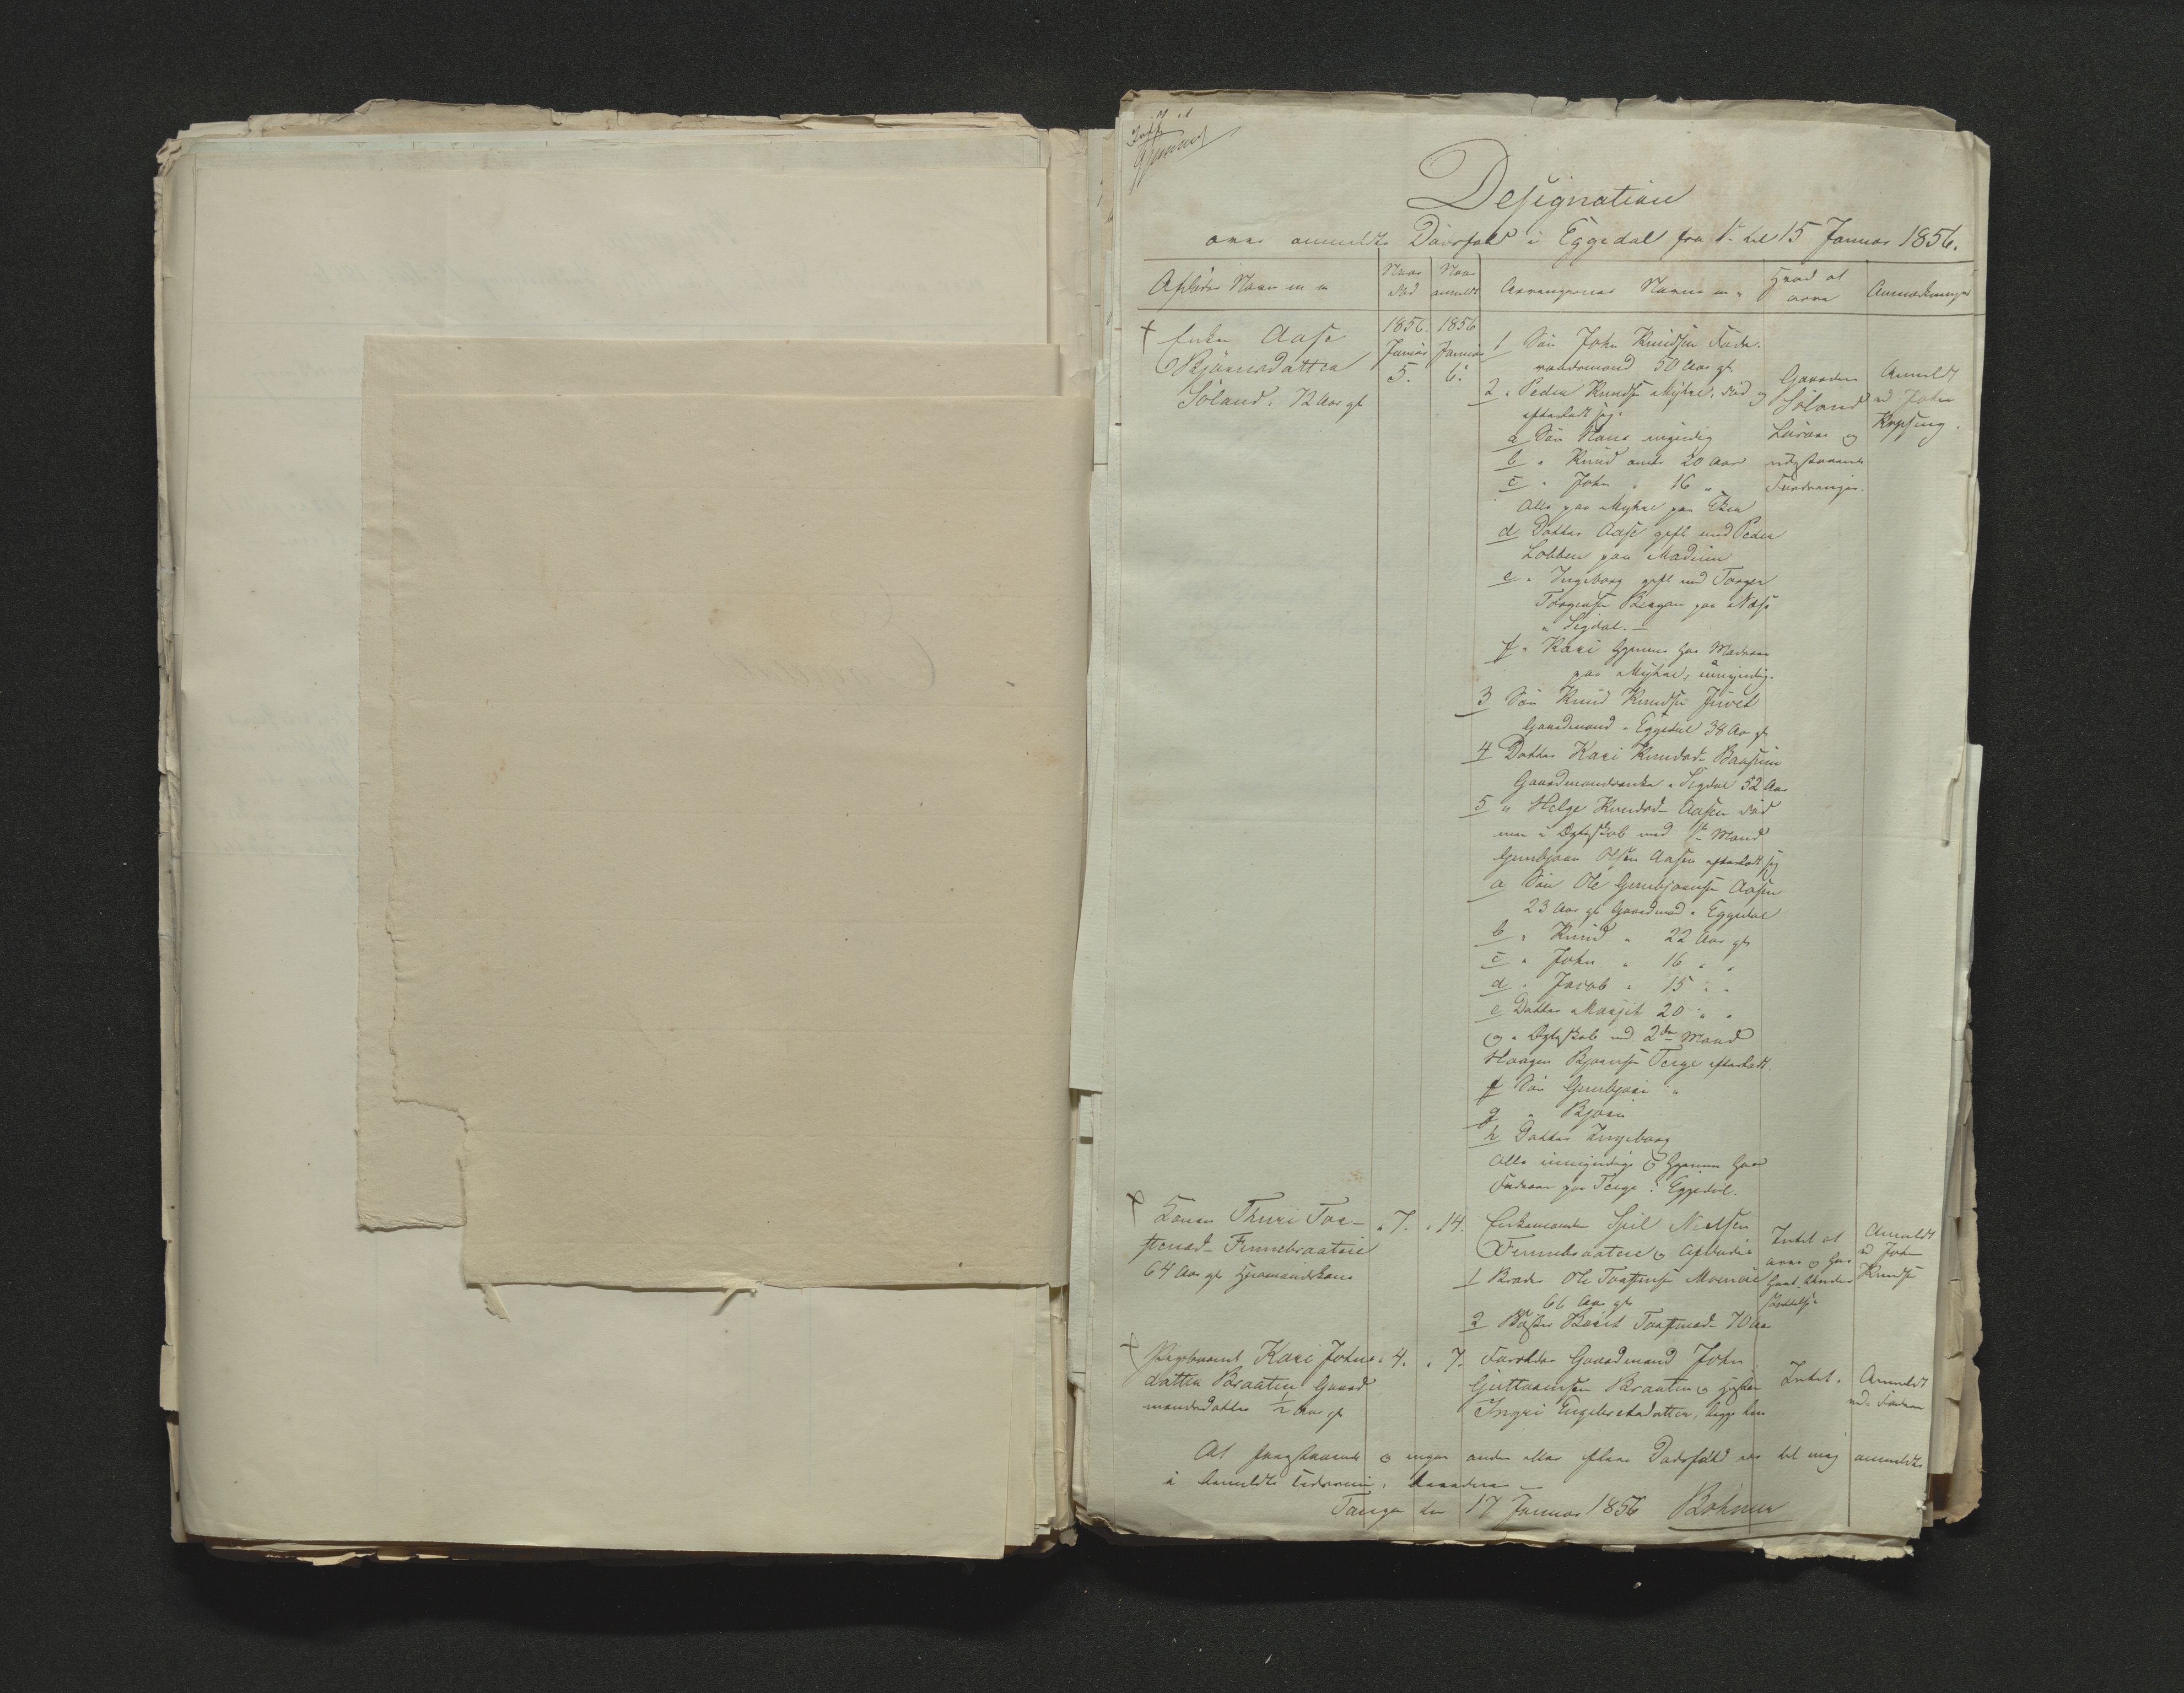 Designation
over anmeldte Dødsfald i Eggedal fra 1. til 15 Januar 1856.
Afdødes Navn m m
Naar død
Naar anmeldt
Arvingernes Navne m
Hvad at arve
Anmærkninger
Enken Aase
Bjørnsdatter
Søland. 72 Aar gl
1856. Januar 5.
1856 Januar 6.
1 Søn John Knudsen Føde-
raadsmand 50 Aar gl
2. Peder Knudsen Myhre, død og
efterladt sig:
a Søn Hans myndig
b " Knud omtr 20 Aar
c " John " 16 "
Alle paa Myhre paa Eker
d Datter Aase gift med Peder
Lobben paa Modum
e " Ingeborg gift med Torger
Torgersen Bergan paa Næss
i Sigdal.
f " Kari hjemme hos Moderen
paa Myhre, umyndig.
3 Søn Knud Knudsen Juvet
Gaardmand i Eggedal 38 Aar gl
4 Datter Kari Knudsd. Braaten
Gaardmandsenke i Sigdal 52 Aar
5 " Helge Knudsd. Aasen død
men i Ægteskab med 1ste Mand
Gunbjørn Olsen Aasen efterladt sig
a Søn Ole Gunbjørnsen Aasen
23 Aar gl Gaardmand i Eggedal
b " Knud " 22 Aar gl
c " John " 16 " "
d " Jacob " 15 " "
e Datter Margit 20 " "
og i Ægteskab med 2den Mand
Haagen Bjørnsen Teige efterladt.
f Søn Gunbjørn "
g " Bjørn
h Datter Ingeborg
Alle umyndige og hjemme hos
Faderen paa Teige i Eggedal.
Gaarden
Søland
Løsøre og
udestaaende
Fordringer.
Anmeldt
ved John
Konen Thuri Tor-
stensd. Finnebraatene
64 Aar gl Huusmandskone
" 7.
" 14.
Enkemanden Nielsen
Finnebraatene og Afdødes
1 Broder Ole Torstensen Moenøie
66 Aar gl
2 Søster Berit Torstensd. 70 Aar
Intet at
arve og
Anmeldt
ved John
Knudsen
Pigebarnet Kari Johns-
datter Braaten Gaard
mandsdatter ½ Aar gl
" 4.
" 7.
Forældre Gaardmand John
Guttormsen Braaten og Hustru
Ingri Engebretsdatter, begge
Intet.
Anmeldt
ved Faderen
At foranstaaende og ingen andre eller flere Dødsfald er til mig anmeldte
i bemeldte Tidsrum,
den 17 Januar 1856 Bohmer